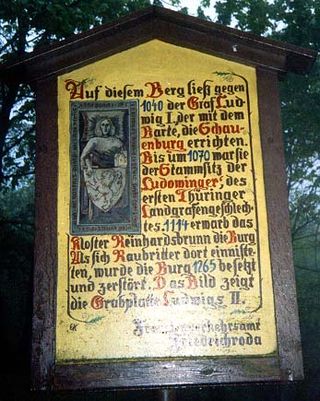 Auf diesem Berg ließ gegen
1040 der Graf Lud-
wig I. der mit dem
Barte, die Schau-
enburg errichten.
Bis um 1070 war sie
der Stammsitz der
Ludowinger, des
ersten Thüringer
Landgrafengeschlech-
tes. 1114 erwarb das
Kloster Reinhardsbrunn die Burg
Als sich Raubritter dort einniste-
ten, wurde die Burg 1265 besetzt
und zerstört. Das Bild zeigt
die Grabplatte Ludwigs II.
Fremdenverkehrsamt
Friedrichroda